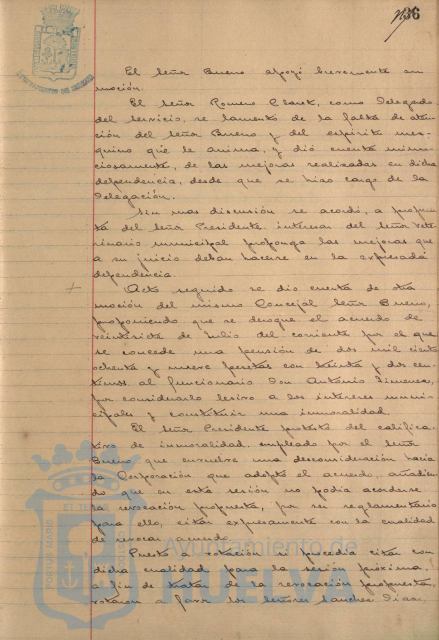 36
El Señor Bueno apoyó brevemente su
moción.
El Señor Romero Claret, como Delegado
del servicio, se lamentó de la falta de aten-
ción del Señor Bueno y del espíritu mez-
quino que le anima, y dió cuenta minu-
ciosamente, de las mejoras realizadas en dicha
dependencia, desde que se hizo cargo de la
Delegación.
Sin mas discusión se acordó, a propues-
ta del Señor Presidente interesar del Señor Vete-
rinario municipal proponga las mejoras que
a su juicio deban hacerse en la expresada
dependencia.
Acto seguido se dio cuenta de otra
moción del mismo Concejal Señor Bueno,
proponiendo que se revoque el acuerdo de
veintisiete de Julio del corriente por el que
se concede una pensión de dos mil ciento
ochenta y nueve pesetas con treinta y dos cen-
timos al funcionario Don Antonio Jimenez,
por considerarlo lesivo a los intereses muni-
cipales y constituir una inmoralidad.
El Señor Presidente protestó del califica-
tivo de inmoralidad empleado por el Señor
Bueno que envuelve una desconsideración hacia
la Corporación que adoptó el acuerdo, añadien-
do que en esta sesión no podía acordarse
la revocación propuesta, por ser reglamentario
para ello, citar expresamente con la cualidad
de revocar acuerdo.
Puesto a votación si procedia citar con
dicha cualidad para la sesión próxima,
a fin de tratar de la revocación propuesta,
votaron a favor los Señores Sanchez Diaz,
Ayuntamiento de
HUELVA